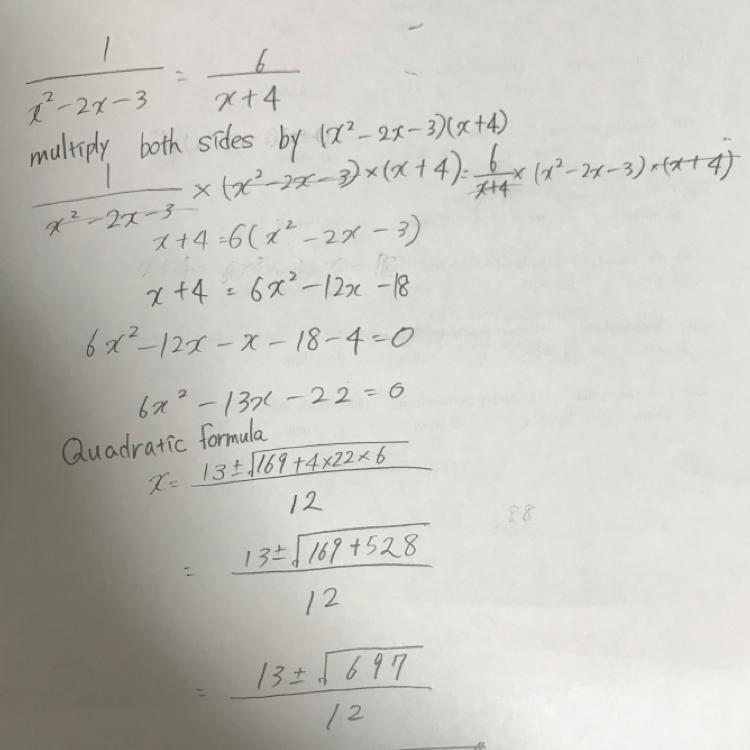 1/(x²-2x-3) = 6/(x+4)
multiply both sides by (x²-2x-3)(x+4)
1/(x²-2x-3) × (x²-2x-3) × (x+4) = 6/(x+4) × (x²-2x-3) × (x+4)
x+4 = 6(x²-2x-3)
x+4 = 6x²-12x-18
6x²-12x-x-18-4=0
6x²-13x-22=0
Quadratic formula
x = (13±√(169+4×22×6))/12
= (13±√(169+528))/12
= (13±√697)/12
88